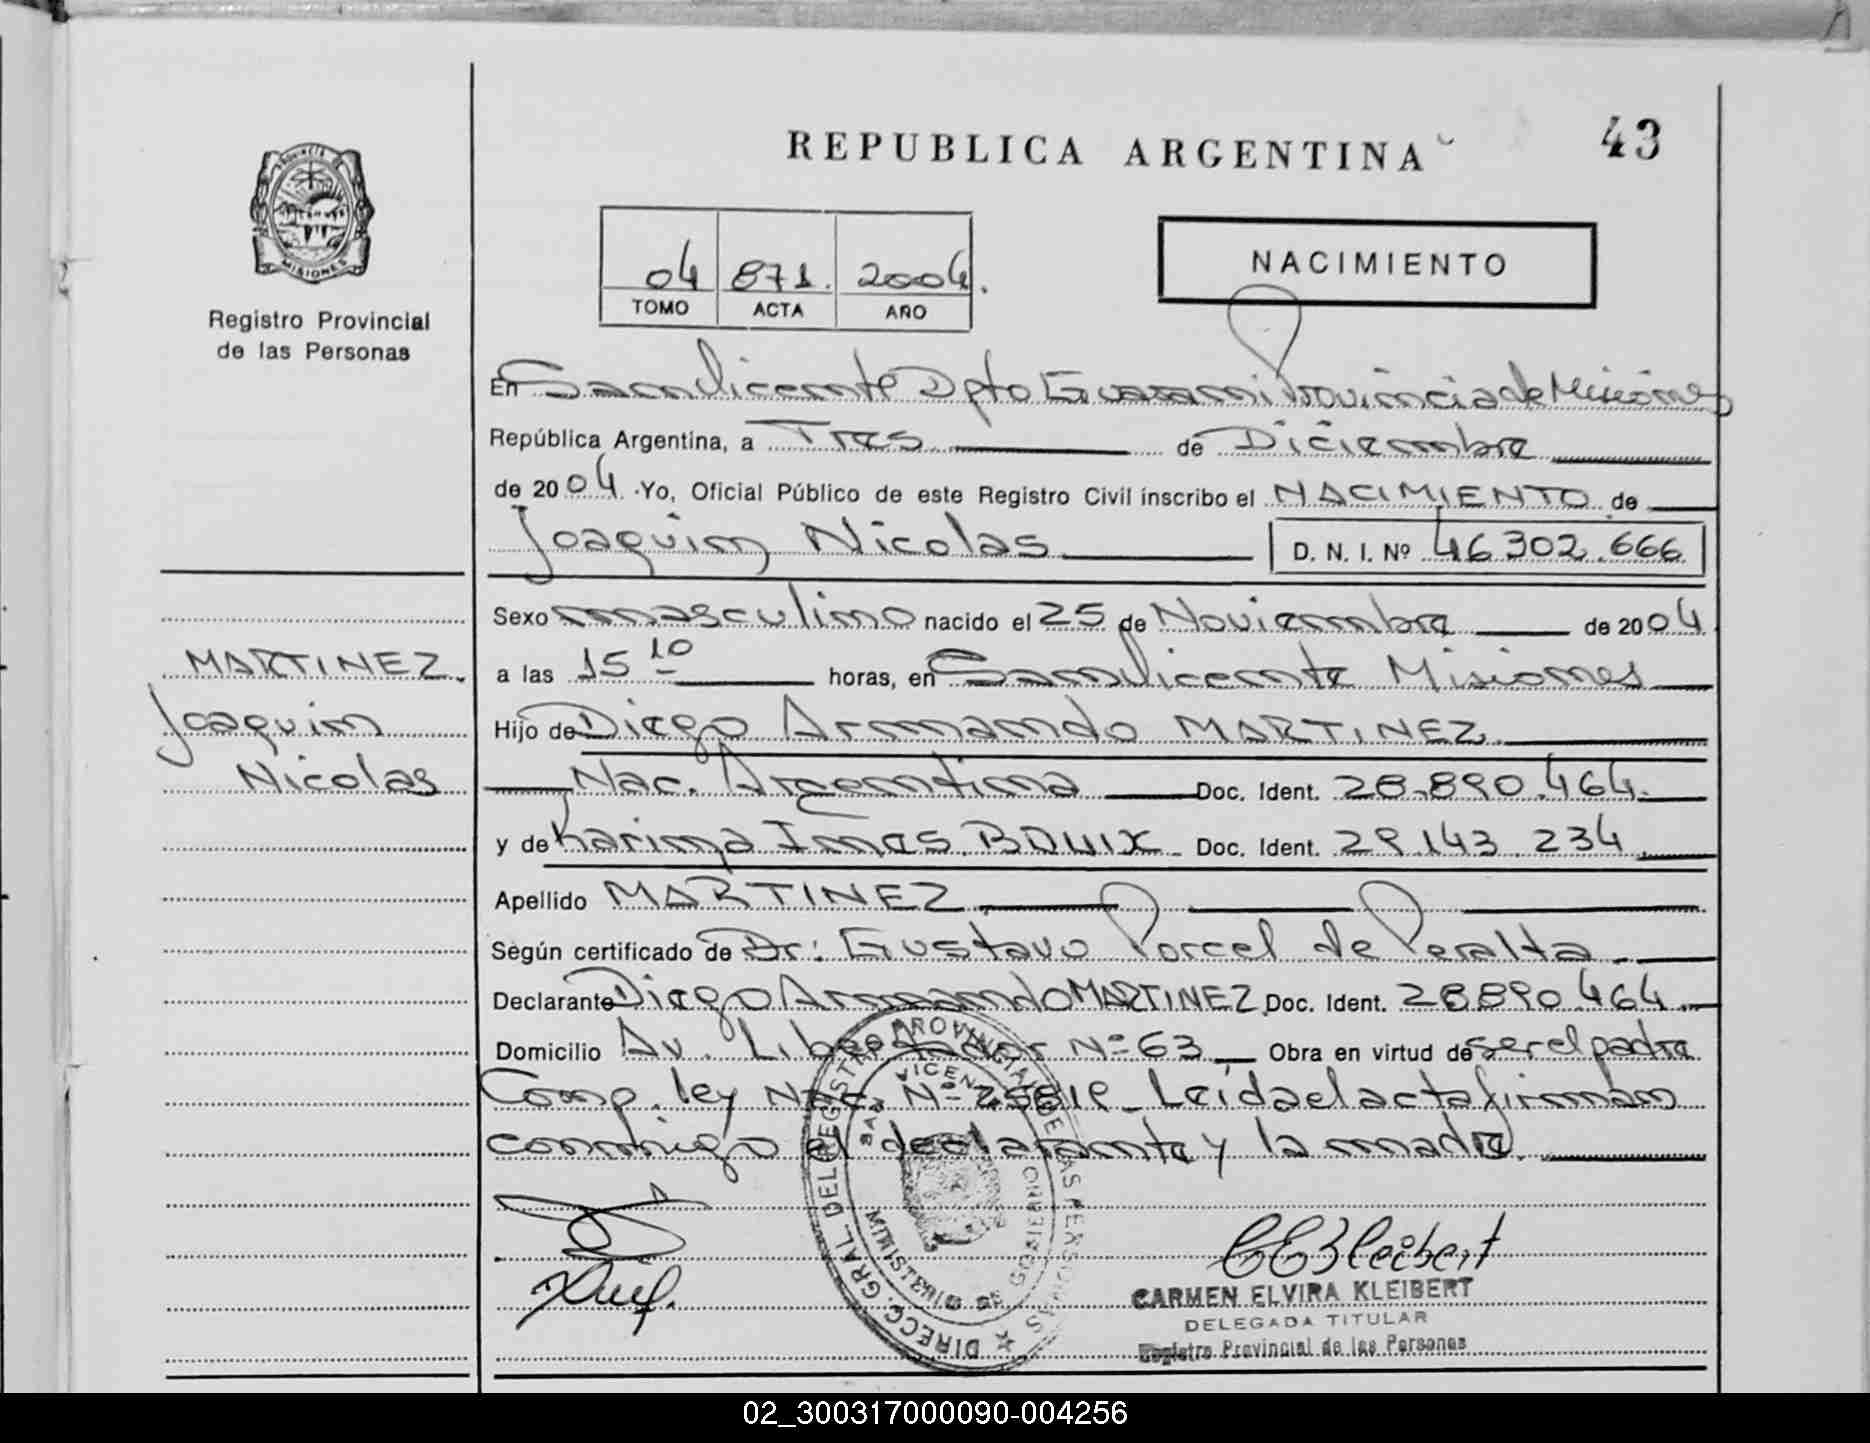 REPUBLICA ARGENTINA
43
PROVINCIA DE
MISIONES
Registro Provincial
de las Personas
04 871. 2004.
TOMO ACTA AÑO
NACIMIENTO
En San Vicente Dpto Guarani Provincia de Misiones
República Argentina, a Tres de Diciembre
de 2004. Yo, Oficial Público de este Registro Civil inscribo el NACIMIENTO de
Joaquin Nicolas D. N. I. Nº 46 302.666
Sexo masculino nacido el 25 de Noviembre de 2004
a las 15 10 horas, en San Vicente Misiones
Hijo de Diego Armando MARTINEZ.
Nac. Argentina Doc. Ident. 28.890.464.
y de Karina Ines BOUIX - Doc. Ident. 29.143.234
Apellido MARTINEZ
Según certificado de Dr: Gustavo Porcel de Peralta
Declarante Diego Armando MARTINEZ Doc. Ident. 28890.464.
Domicilio Av. Libertador Nº 63 Obra en virtud de ser el padre
Comp. ley Nac. Nº 25819_ Leida el acta firman
conmigo el declarante y la madre.
MARTINEZ.
Joaquin
Nicolas
DIRECC. GRAL DEL REGISTRO PROVINCIAL DE LAS PERSONAS
SAN VICENTE
MINISTERIO DE GOBIERNO
CEKleibert
CARMEN ELVIRA KLEIBERT
DELEGADA TITULAR
Registro Provincial de las Personas
02_300317000090-004256